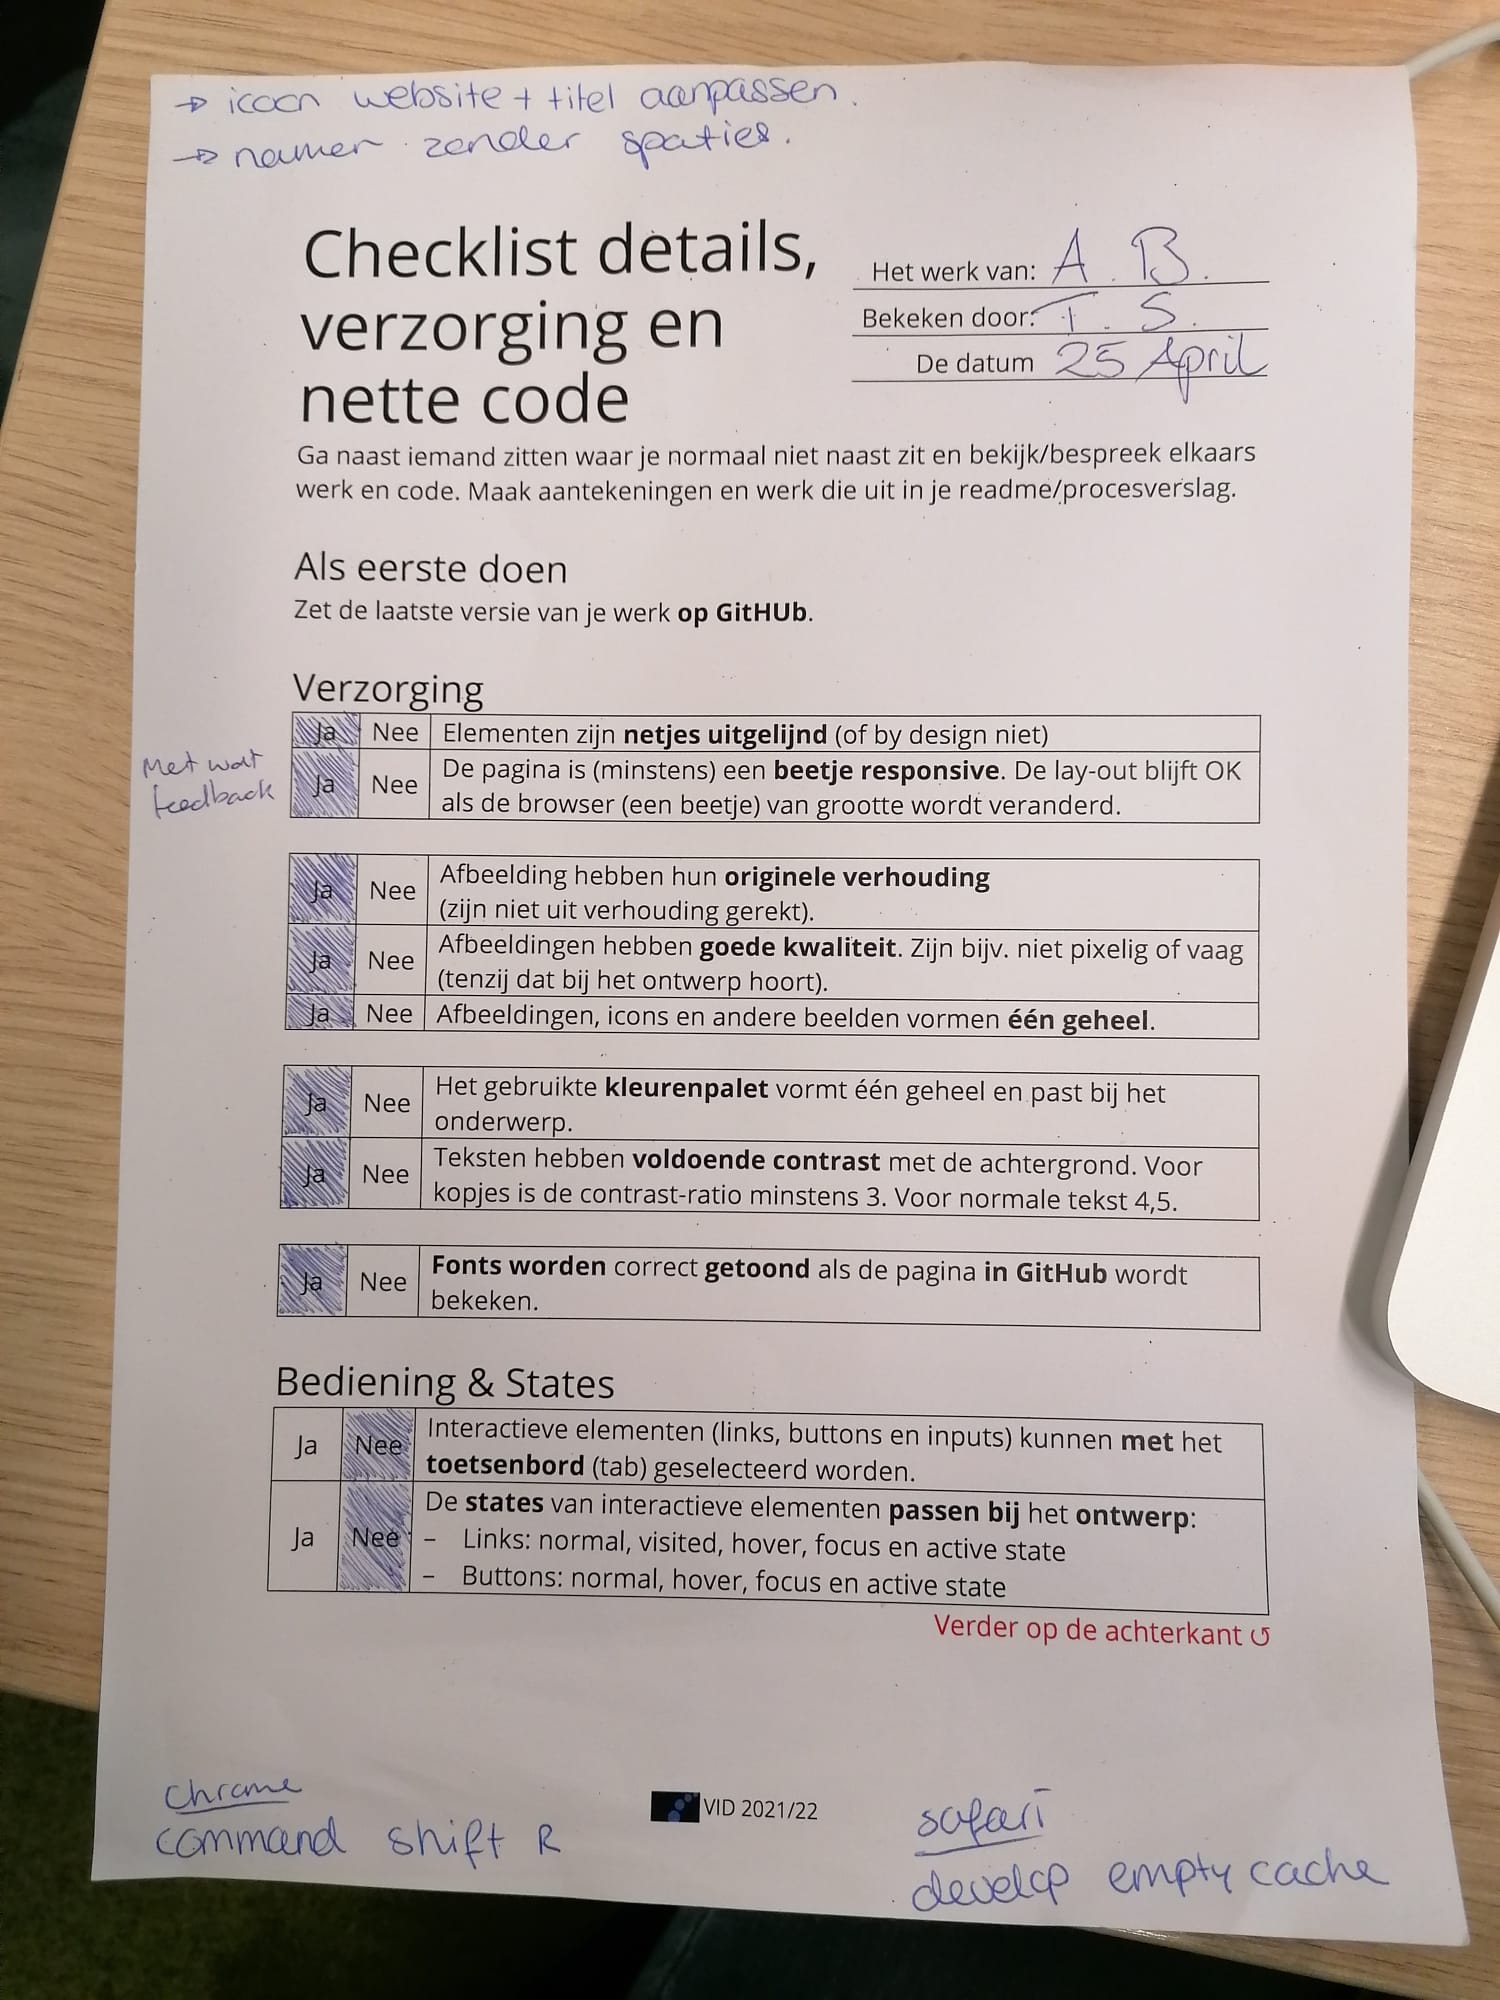 → icoon website + titel aanpassen.
→ namen zonder spaties.
Checklist details,
verzorging en
nette code
Het werk van: A. B.
Bekeken door: T. S.
De datum 25 April
Ga naast iemand zitten waar je normaal niet naast zit en bekijk/bespreek elkaars
werk en code. Maak aantekeningen en werk die uit in je readme/procesverslag.
Als eerste doen
Zet de laatste versie van je werk op GitHUb.
Verzorging
Ja Nee Elementen zijn netjes uitgelijnd (of by design niet)
Met wat
feedback
Ja Nee De pagina is (minstens) een beetje responsive. De lay-out blijft OK
als de browser (een beetje) van grootte wordt veranderd.
Ja Nee Afbeelding hebben hun originele verhouding
(zijn niet uit verhouding gerekt).
Ja Nee Afbeeldingen hebben goede kwaliteit. Zijn bijv. niet pixelig of vaag
(tenzij dat bij het ontwerp hoort).
Ja Nee Afbeeldingen, icons en andere beelden vormen één geheel.
Ja Nee Het gebruikte kleurenpalet vormt één geheel en past bij het
onderwerp.
Ja Nee Teksten hebben voldoende contrast met de achtergrond. Voor
kopjes is de contrast-ratio minstens 3. Voor normale tekst 4,5.
Ja Nee Fonts worden correct getoond als de pagina in GitHub wordt
bekeken.
Bediening & States
Ja Nee Interactieve elementen (links, buttons en inputs) kunnen met het
toetsenbord (tab) geselecteerd worden.
Ja Nee De states van interactieve elementen passen bij het ontwerp:
– Links: normal, visited, hover, focus en active state
– Buttons: normal, hover, focus en active state
Verder op de achterkant ↺
chrome
command shift R
VID 2021/22
safari
develop empty cache